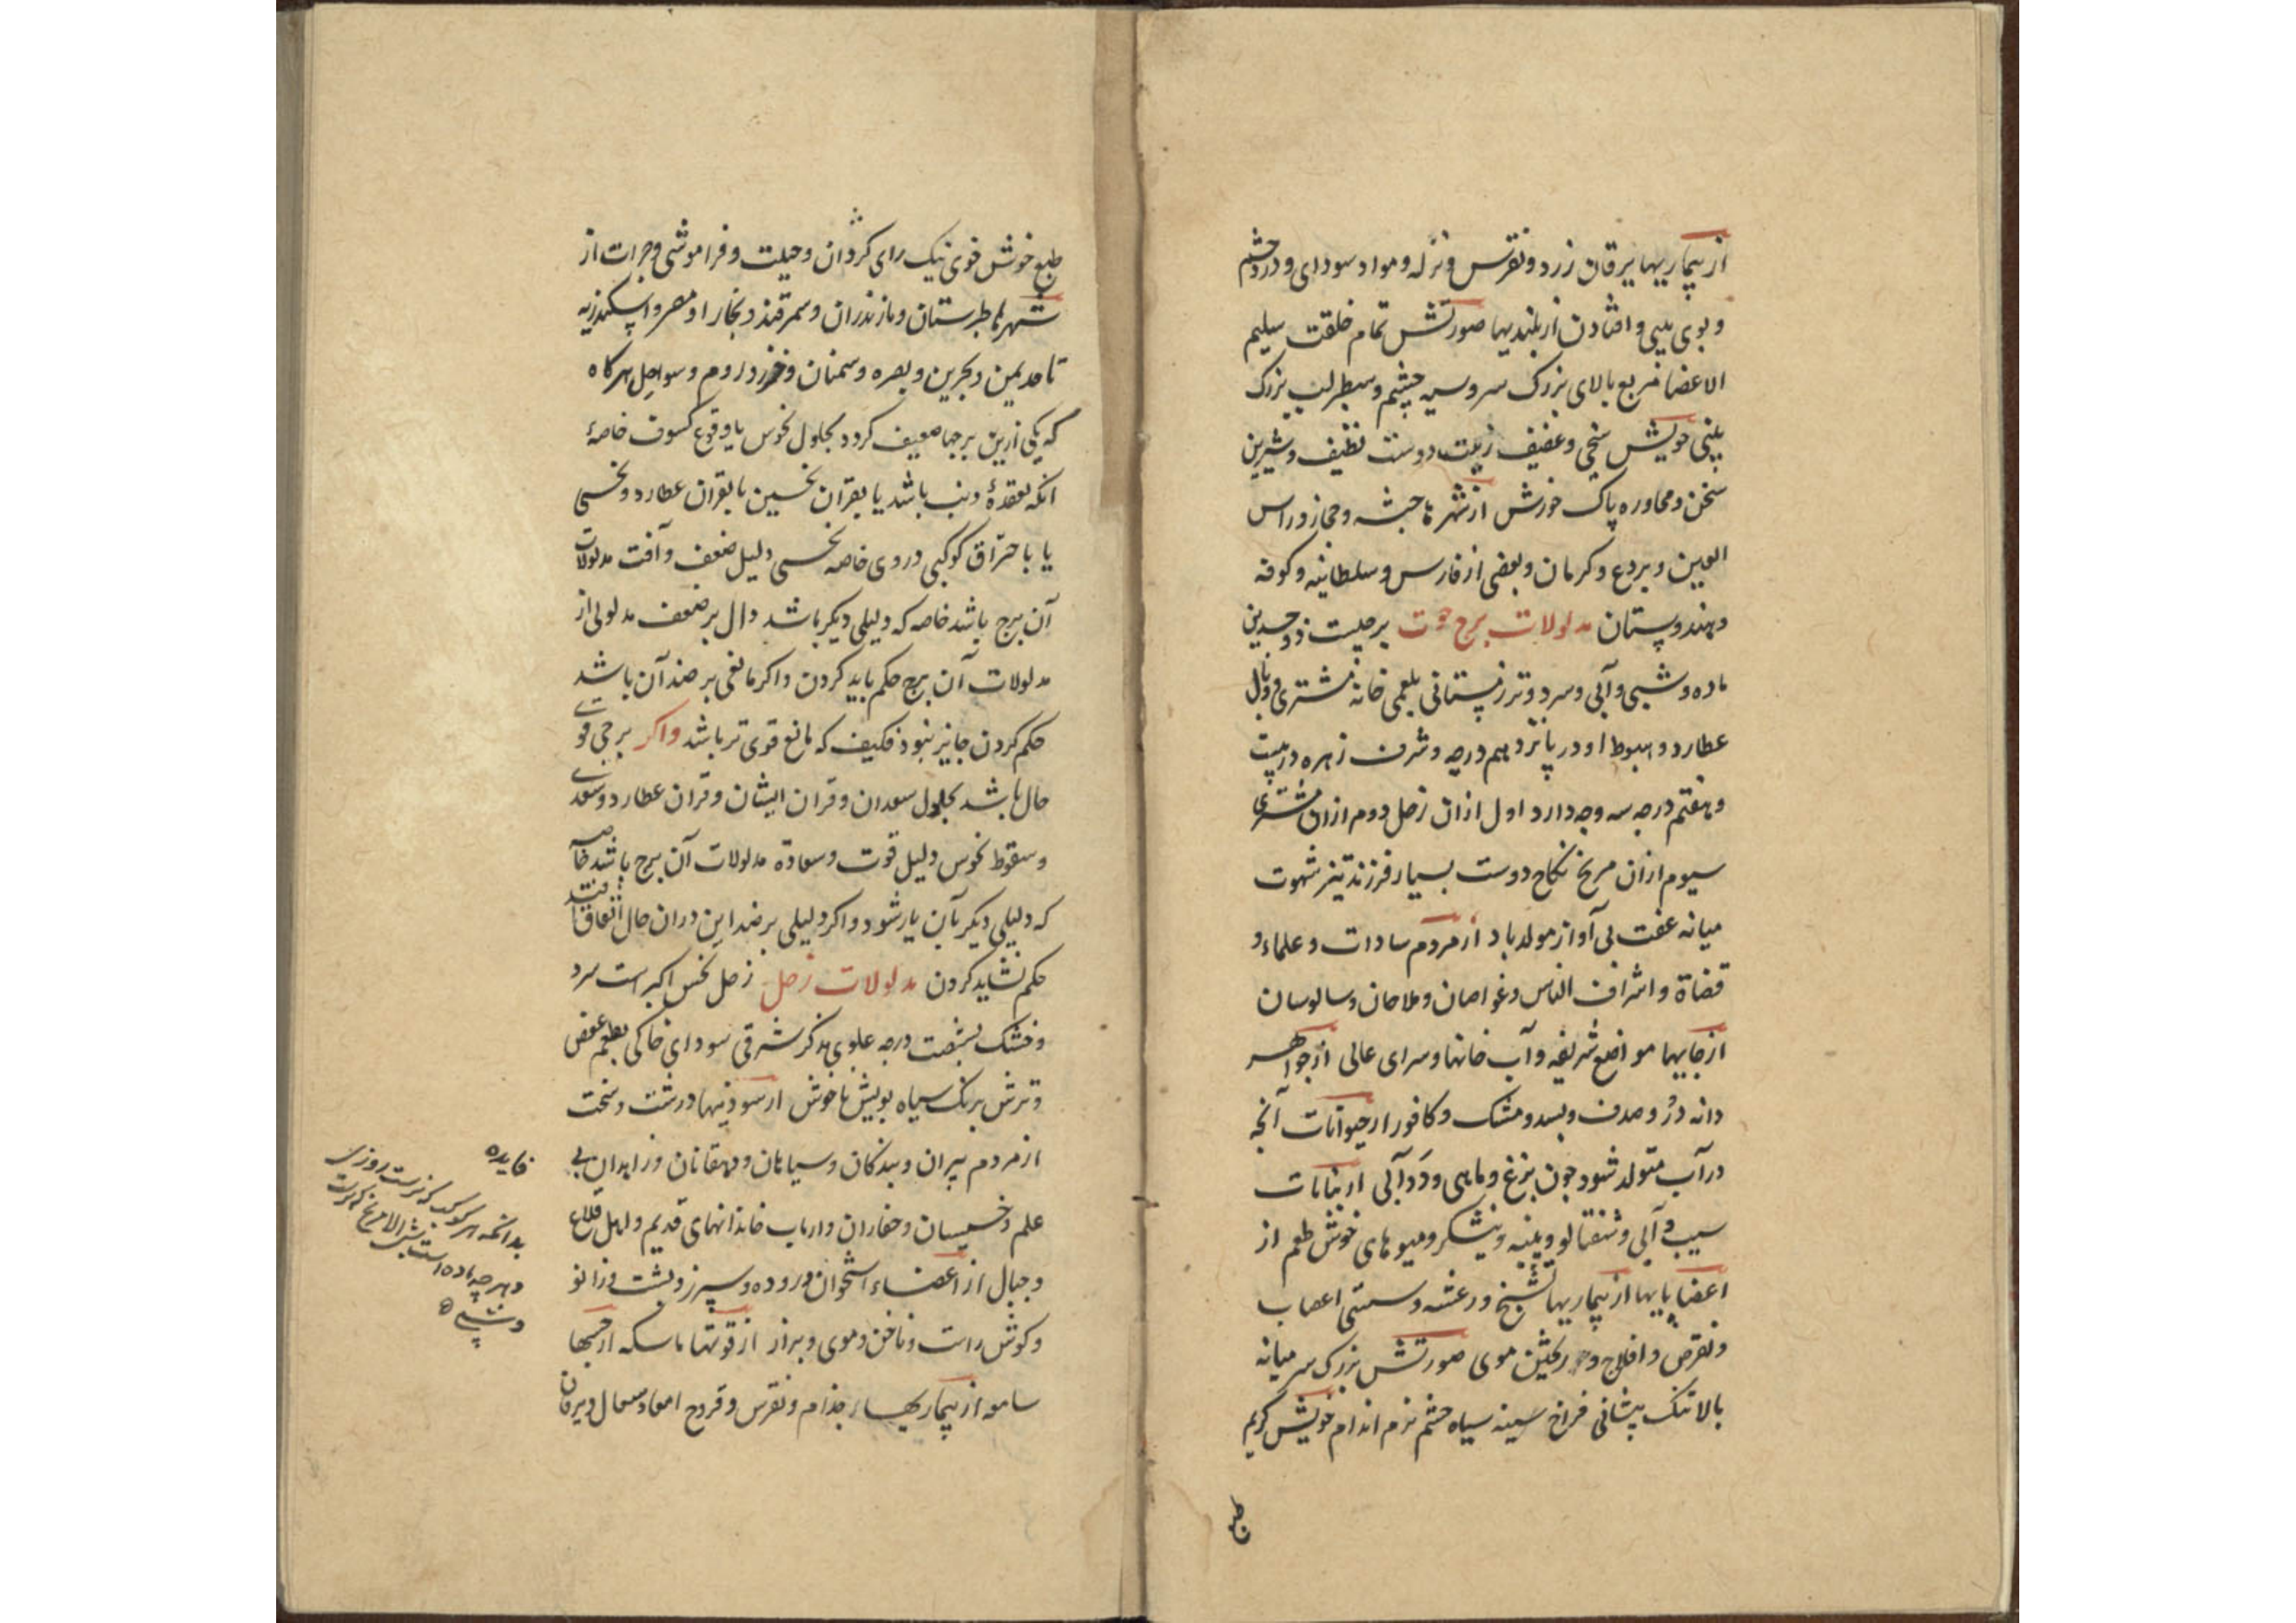 از بیماریها یرقان زرد و نقرس و نزله و مواد سودای و درد چشم
و بوی بینی و افتادن از بلندیها صورتش تمام خلقت سلیم
الاعضا مربع بالای بزرگ سر و سیه چشم و سطبر لب بزرگ
بینی خویش سخی و عفیف زینت دوست نظیف و شیرین
سخن و محاوره پاک خورش از شهرها حبشه و حجاز و راس
العین و بردع و کرمان و بعضی از فارس و سلطانیه و کوفه
و هندوستان مدلولات برج حوت برجیست ذوجسدین
ماده و شبی و آبی و سرد و تر زمستانی بلغمی خانه مشتری و وبال
عطارد و هبوط او در پانزدهم درجه و شرف زهره در بیست
و هفتم درجه سه وجه دارد اول ازان زحل دوم ازان مشتری
سیوم ازان مریخ نکاح دوست بسیار فرزند تیز شهوت
میانه عفت بی آواز مولد باد از مردم سادات و علماء و
قضاة و اشراف الناس و غواصان و ملاحان و سالوسان
از جایها مواضع شریفه و آب خانها و سرای عالی از جواهر
دانه در و صدف و بسد و مشک و کافور از حیوانات آنچه
در آب متولد شود چون بزغ و ماهی و دد آبی از نباتات
سیب و آبی و شفتالو و پنبه و نیشکر و میوهای خوش طعم از
اعضا پایها از بیماریها تشنج و رعشه و سستی اعصاب
و نقرص و افلاج و ریختن موی صورتش بزرگ سر میانه
بالا تنک پیشانی فراخ سینه سیاه چشم نرم اندام خویش کریم
طبع
طبع خوش خوی نیک رای کردان و حیلت و فراموشی و جرات از
شهرها طبرستان و مازندران و سمرقند و بخارا و مصر و اسکندریه
تا حد یمن و بحرین و بصره و سمنان و خزر و روم و سواحل هرگاه
که یکی ازین برجها ضعیف کردد بحلول نحوس یا وقوع کسوف خاصهٔ
انکه بعقدهٔ ذنب باشد یا بقرآن نحسین یا بقران عطارد و نحسی
یا باحتراق کوکبی در وی خاصه نحسی دلیل ضعف و آفت مدلولات
آن برج باشد خاصه که دلیلی دیکر باشد دال بر ضعف مدلولی از
مدلولات آن برج حکم باید کردن و اکر مانعی بر ضد آن باشد
حکم کردن جایز نبود فکیف که مانع قوی تر باشد و اکر برجی قوی
حال باشد بحلول سعدان و قران ایشان و قران عطارد و سعدی
و سقوط نحوس دلیل قوت و سعادة مدلولات آن برج باشد خاصه
که دلیلی دیکر بآن یار شود و اکر دلیلی بر ضد این دران حال اتفاق افتد
حکم نشاید کردن مدلولات زحل زحل نحس اکبر است سرد
و خشک بشصت درجه علوی مذکر شرقی سودای خاکی بطعم عفص
و ترش برنک سیاه بویش ناخوش از سودنیها درشت و سخت
از مردم پیران و بندکان و سیاهان و دهقانان و زاهدان بی
علم و خسیسان و حفاران و ارباب خاندانهای قدیم و اهل قلاع
و جبال از اعضاء استخوان و روده و سپرز و پشت و زانو
و کوش راست و ناخن و موی و براز از قوتها ماسکه از حسها
سامعه از بیماریهاء جذام و نقرس و قروح امعا و سعال و یرقان
فایده
بدانکه هر کوکب که نرست روزی
و هرچه ماده است شبی الا مریخ که نرست
و شبی